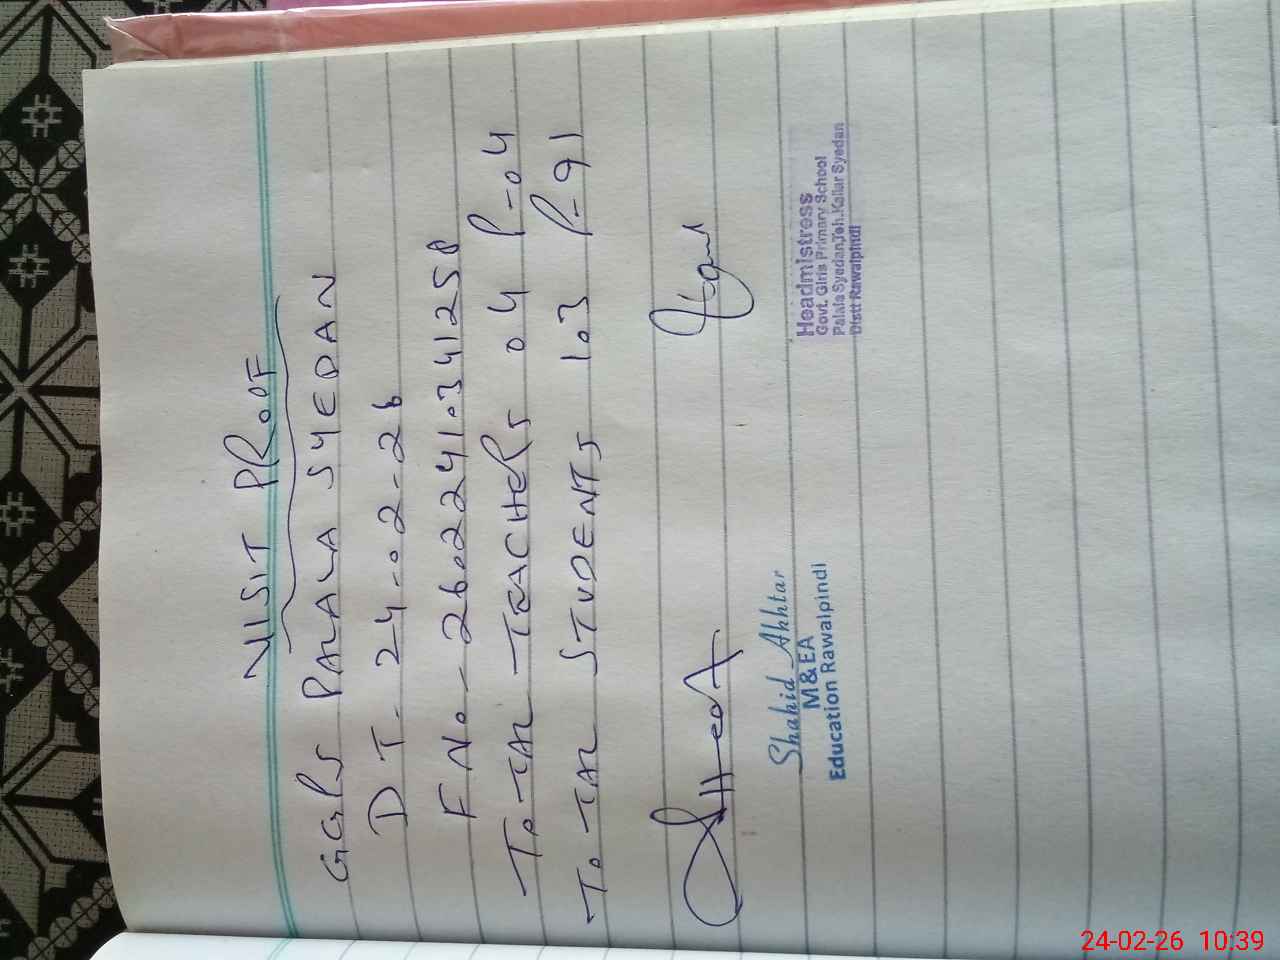 VISIT PROOF
GGPS PALALA SYEDAN
DT. 24-02-26
F No - 26022410341258
TOTAL TEACHERS 04 P-04
TOTAL STUDENTS 103 P-91
Shahid Akhtar
M & EA
Education Rawalpindi
Headmistress
Govt. Girls Primary School
Palala Syedan,Teh.Kallar Syedan
Distt Rawalpindi
24-02-26 10:39